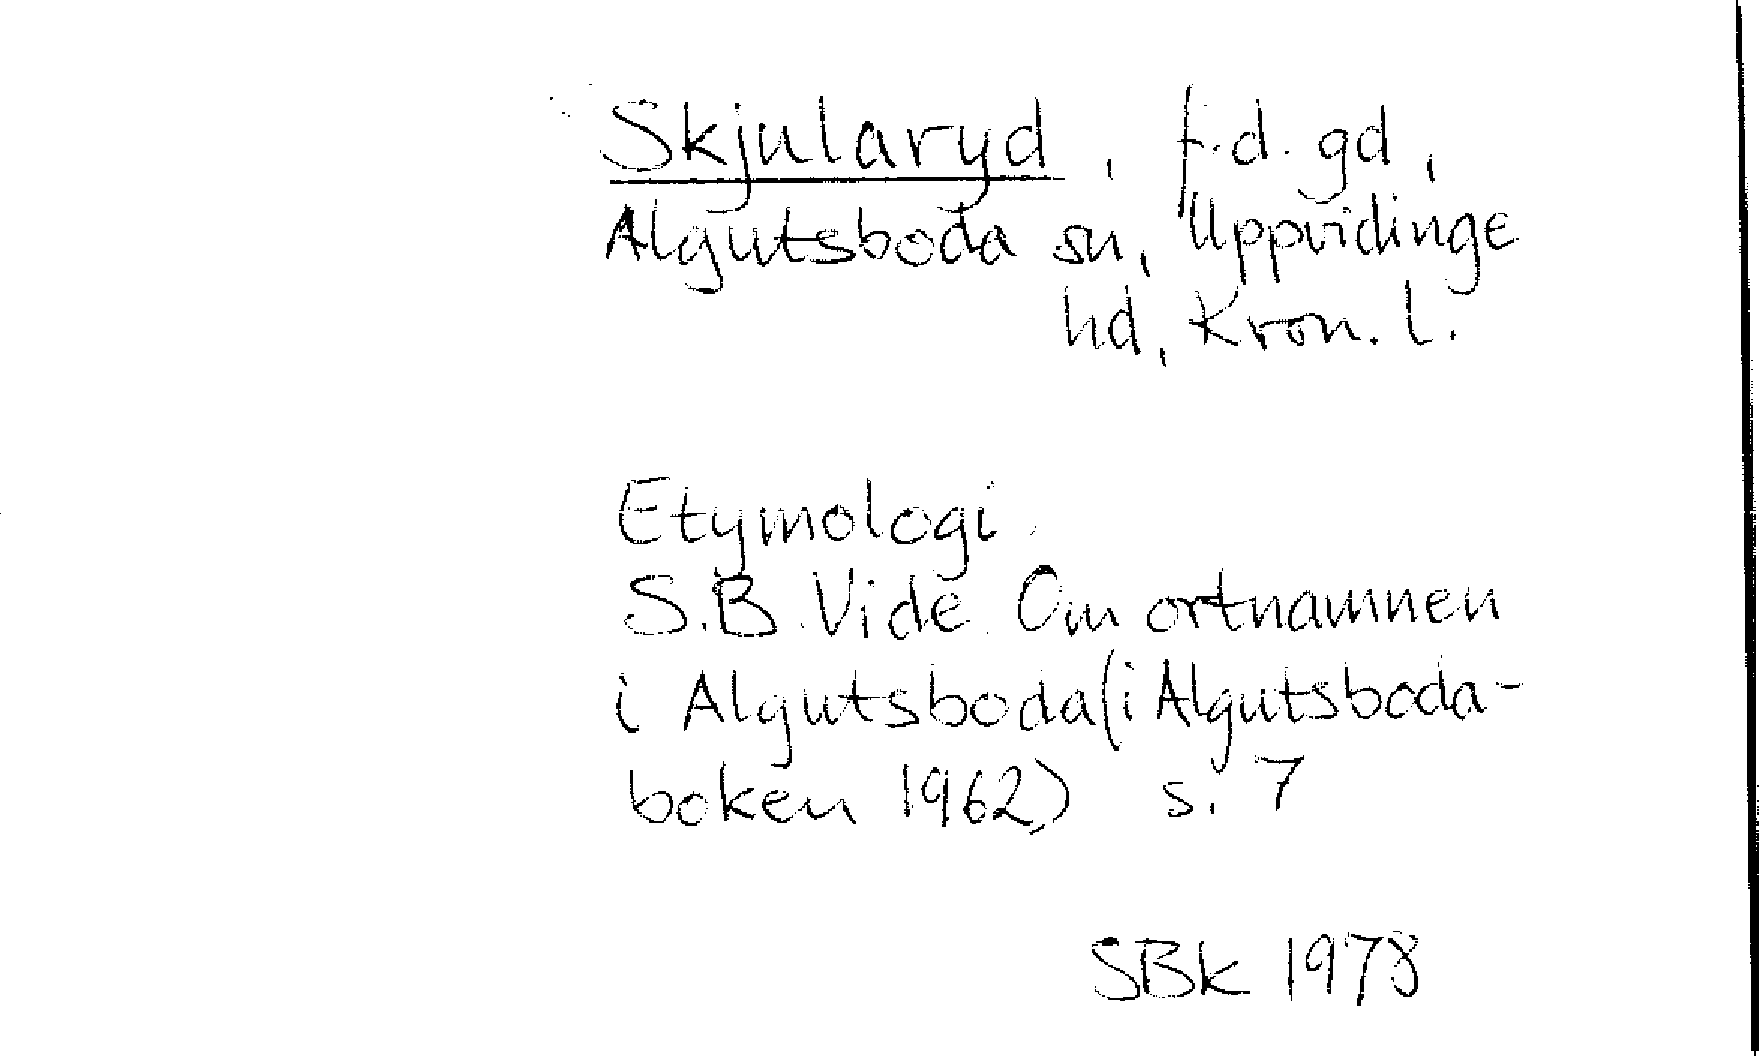 Skjularyd, f.d. gd,
Algutsboda sn, Uppvidinge
hd, Kron. l.
Etymologi.
S.B. Vide. Om ortnamnen
i Algutsboda (i Algutsboda-
boken 1962) s. 7
SBk 1978